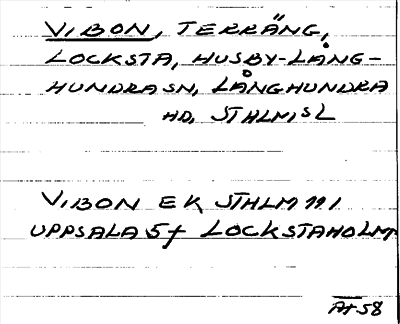 VIBON, TERRÄNG,
LOCKSTA, HUSBY-LÅNG-
HUNDRA SN, LÅNGHUNDRA
HD, STHLMS L
VIBON EK STHLM 111
UPPSALA 5f LOCKSTAHOLM
58